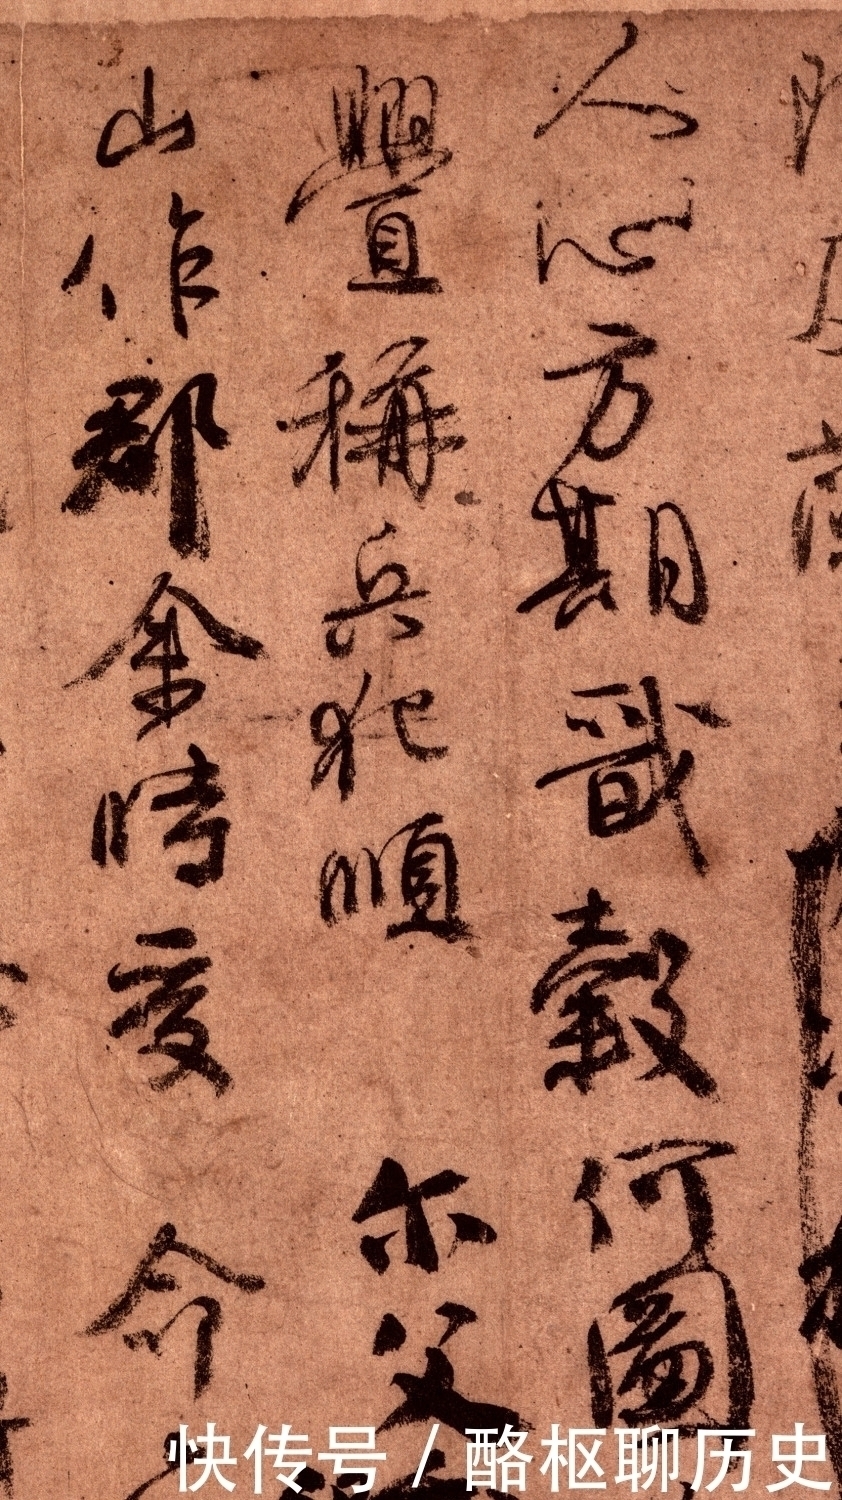 人心方期戩穀何圖
舋稱兵犯順 尔父
山作郡余時受 命
快传号 / 酪枢聊历史